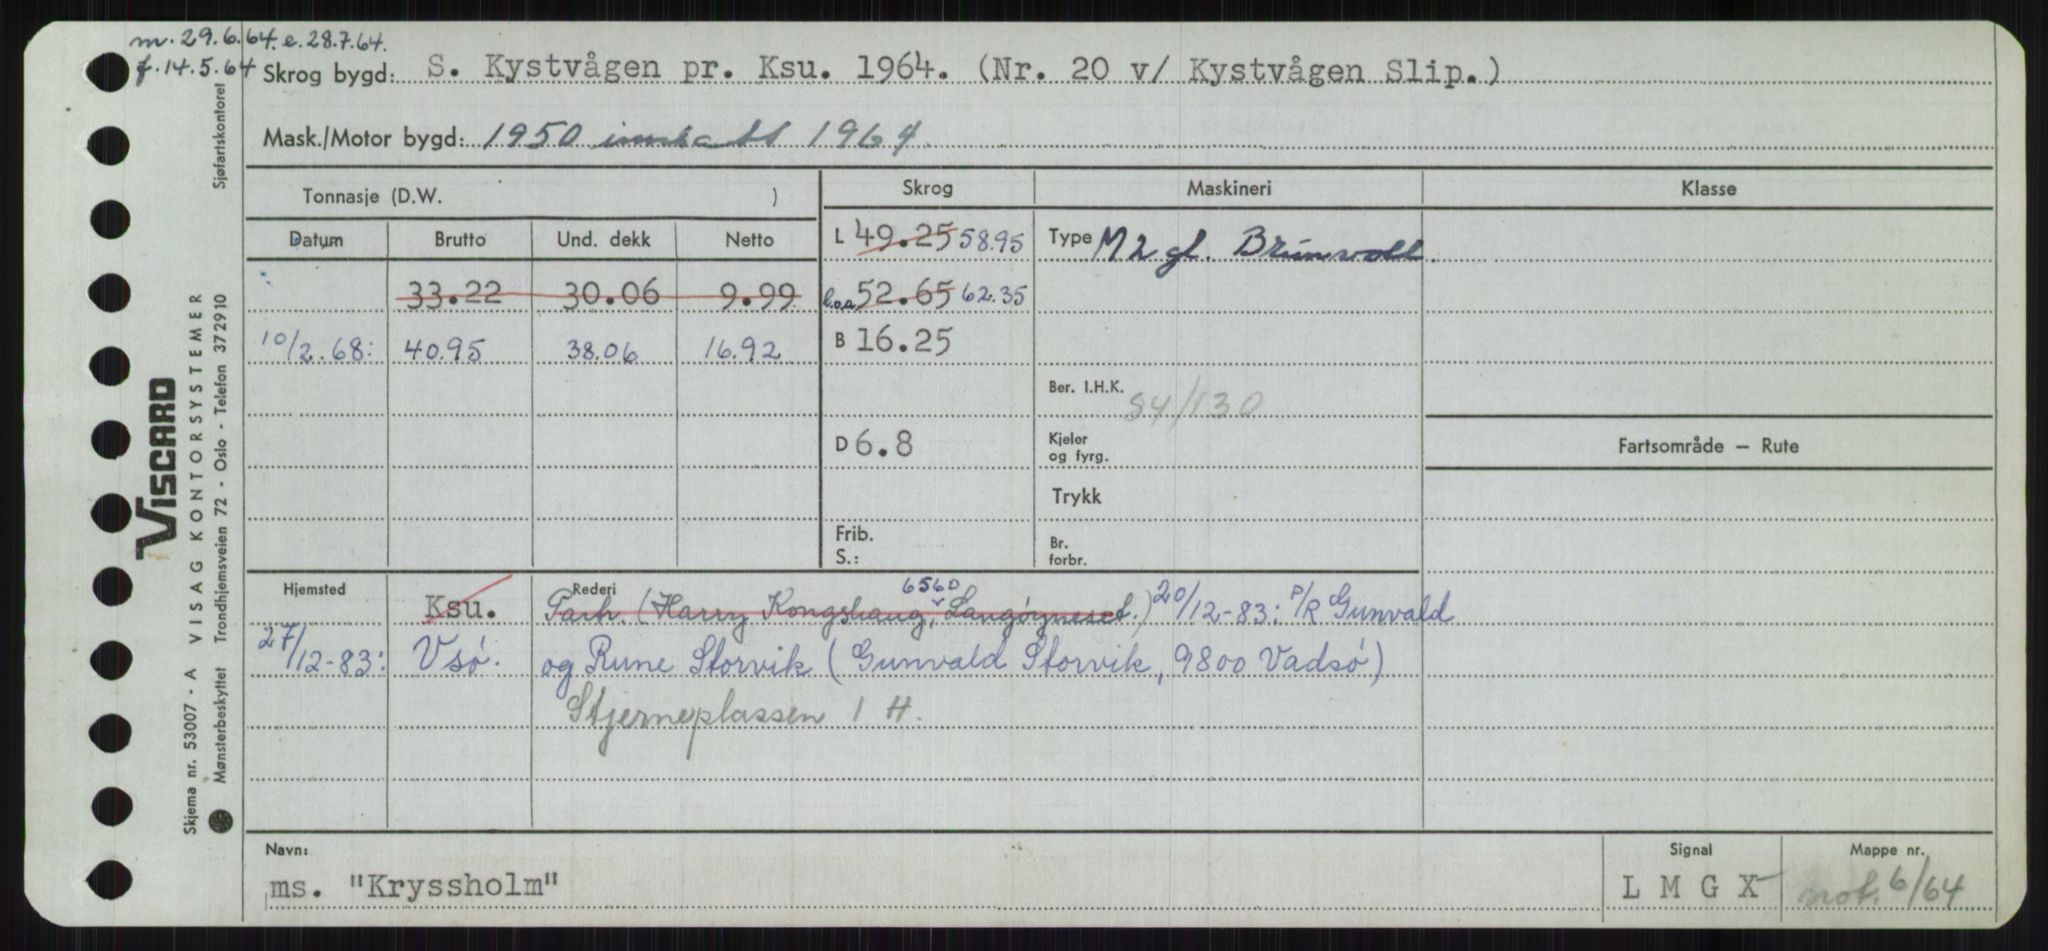 m. 29.6.64. e. 28.7.64.
f. 14.5.64
Skrog bygd: S. Kystvågen pr. Ksu. 1964. (Nr. 20 v/ Kystvågen Slip.)
Mask./Motor bygd: 1950 innsatt 1964
Tonnasje (D.W. )
Skrog
Maskineri
Klasse
Datum Brutto Und. dekk Netto
L 49.25 58.95
Type M 2 gl. Brunvoll
33.22 30.06 9.99
l.o.a. 52.65 62.35
10/2.68: 40.95 38.06 16.92
B 16.25
Ber. I.H.K. 84/130
D 6.8
Kjeler og fyrg.
Fartsområde — Rute
Trykk
Frib.
S.:
Br. forbr.
Hjemsted Ksu.
Rederi 6560
Partr. (Harry Kongshaug, Langøyneset.) 20/12-83: P/R Gunvald
27/12-83: Vsø. og Rune Storvik (Gunvald Storvik, 9800 Vadsø)
Stjerneplassen 1 H.
Navn:
ms. "Kryssholm"
Signal
L M G X
Mappe nr.
not. 6/64
VISCARD
Skjema nr. 53007 - A VISAG KONTORSYSTEMER
Mønsterbeskyttet Trondhjemsveien 72 - Oslo - Telefon 372910 Sjøfartskontoret